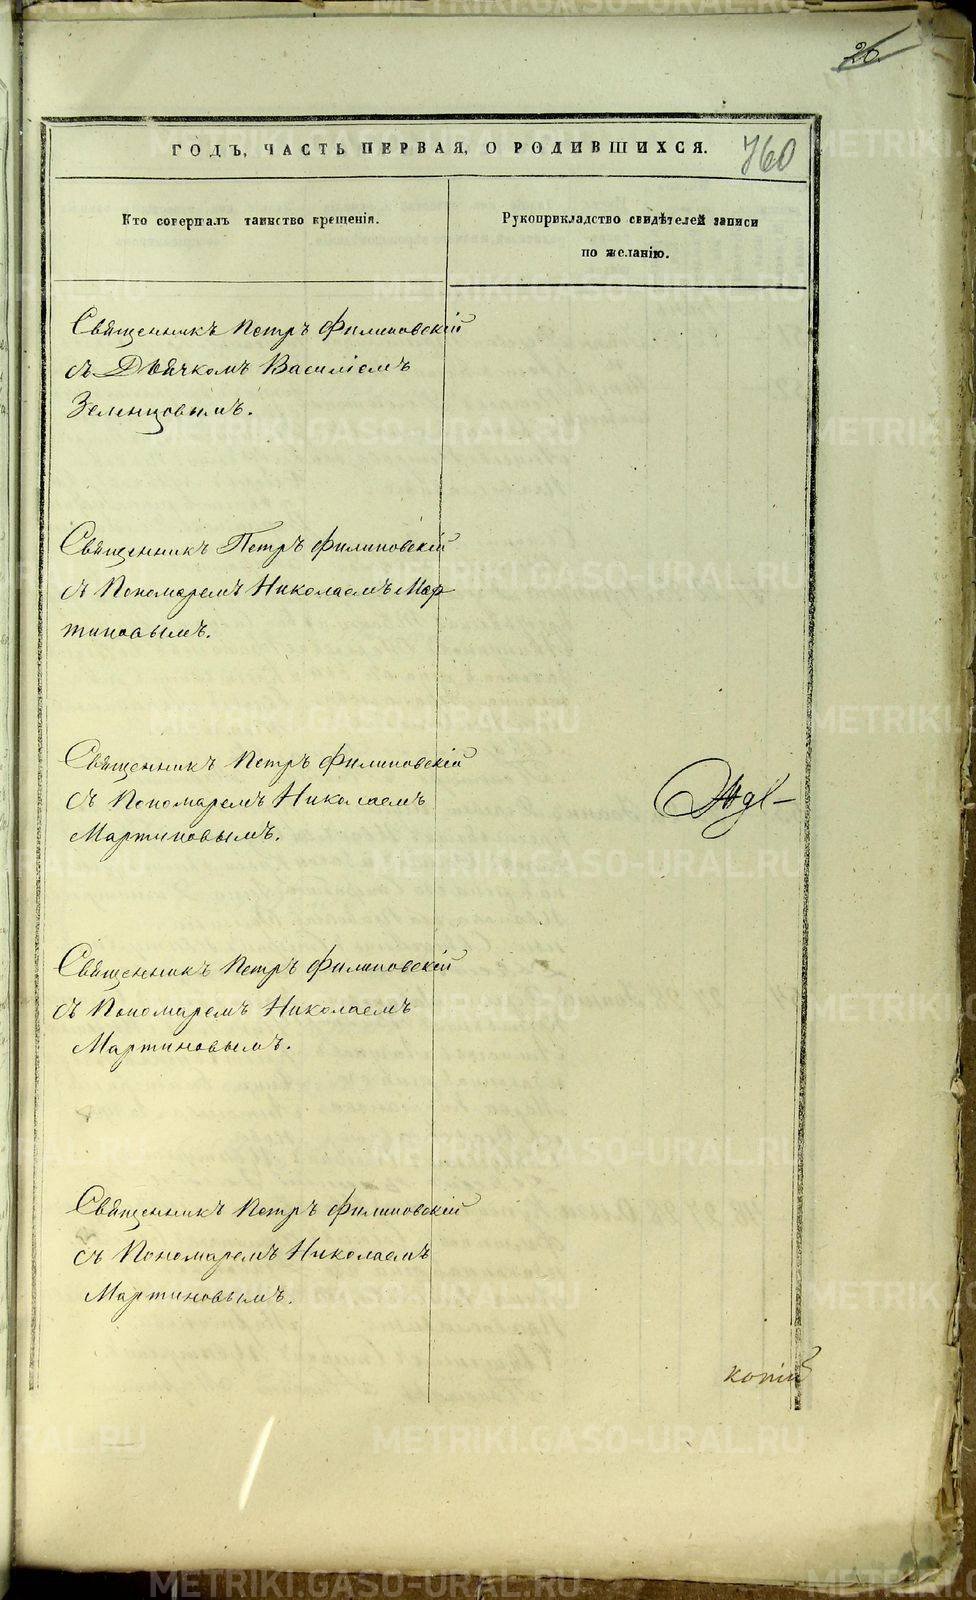 20.
ГОДЪ, ЧАСТЬ ПЕРВАЯ, О РОДИВШИХСЯ.
760
Кто совершалъ таинство крещенія.
Рукоприкладство свидѣтелей записи
по желанію.
Священникъ Петръ Филиповскій
съ Дьячкомъ Василіемъ
Зеленцовымъ.
Священникъ Петръ Филиповскій
съ Пономаремъ Николаемъ Мар
тиновымъ.
Священникъ Петръ Филиповскій
съ Пономаремъ Николаемъ
Мартиновымъ.
Священникъ Петръ Филиповскій
съ Пономаремъ Николаемъ
Мартиновымъ.
Священникъ Петръ Филиповскій
съ Пономаремъ Николаемъ
Мартиновымъ.
METRIKI.GASO-URAL.RU